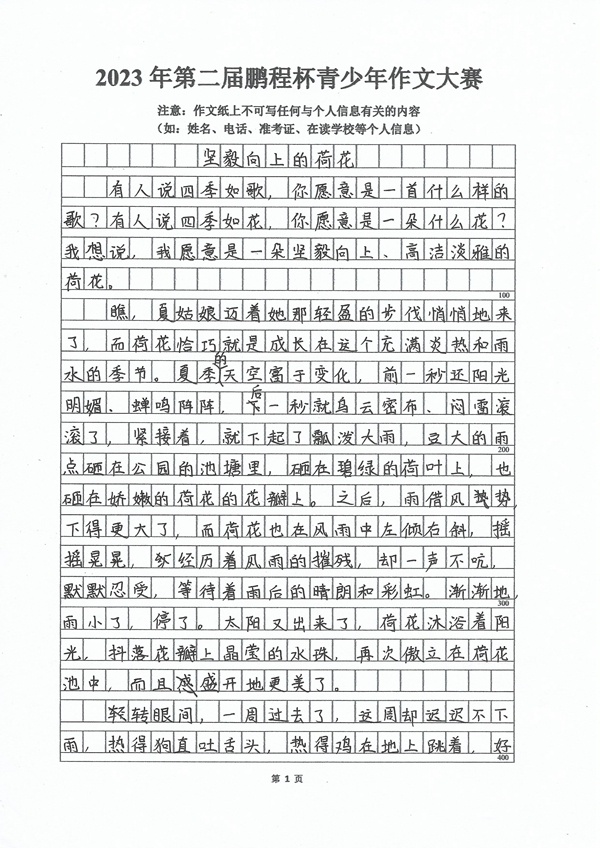 2023 年第二届鹏程杯青少年作文大赛
注意：作文纸上不可写任何与个人信息有关的内容
（如：姓名、电话、准考证、在读学校等个人信息）
坚毅向上的荷花
有人说四季如歌，你愿意是一首什么样的
歌？有人说四季如花，你愿意是一朵什么花？
我想说，我愿意是一朵坚毅向上、高洁淡雅的
荷花。
100
瞧，夏姑娘迈着她那轻盈的步伐悄悄地来
了，而荷花恰巧就是成长在这个充满炎热和雨
水的季节。夏季的天空富于变化，前一秒还阳光
明媚、蝉鸣阵阵，后一秒就乌云密布、闷雷滚
滚了，紧接着，就下起了瓢泼大雨，豆大的雨
200
点砸在公园的池塘里，砸在碧绿的荷叶上，也
砸在娇嫩的荷花的花瓣上。之后，雨借风势，
下得更大了，而荷花也在风雨中左倾右斜，摇
摇晃晃，经历着风雨的摧残，却一声不吭，
默默忍受，等待着雨后的晴朗和彩虹。渐渐地，
300
雨小了，停了。太阳又出来了，荷花沐浴着阳
光，抖落花瓣上晶莹的水珠，再次傲立在荷花
池中，而且盛开地更美了。
转眼间，一周过去了，这周却迟迟不下
雨，热得狗直吐舌头，热得鸡在地上跳着，好
400
第 1 页